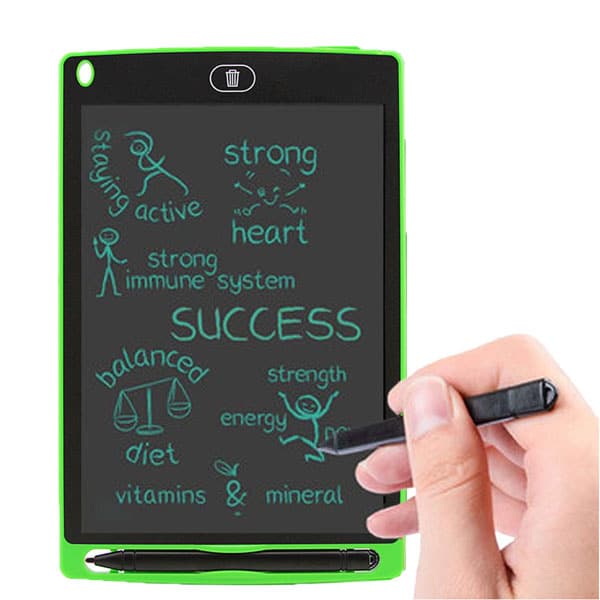 staying
active
strong
heart
strong
immune system
SUCCESS
balanced
diet
strength
energy
vitamins & mineral